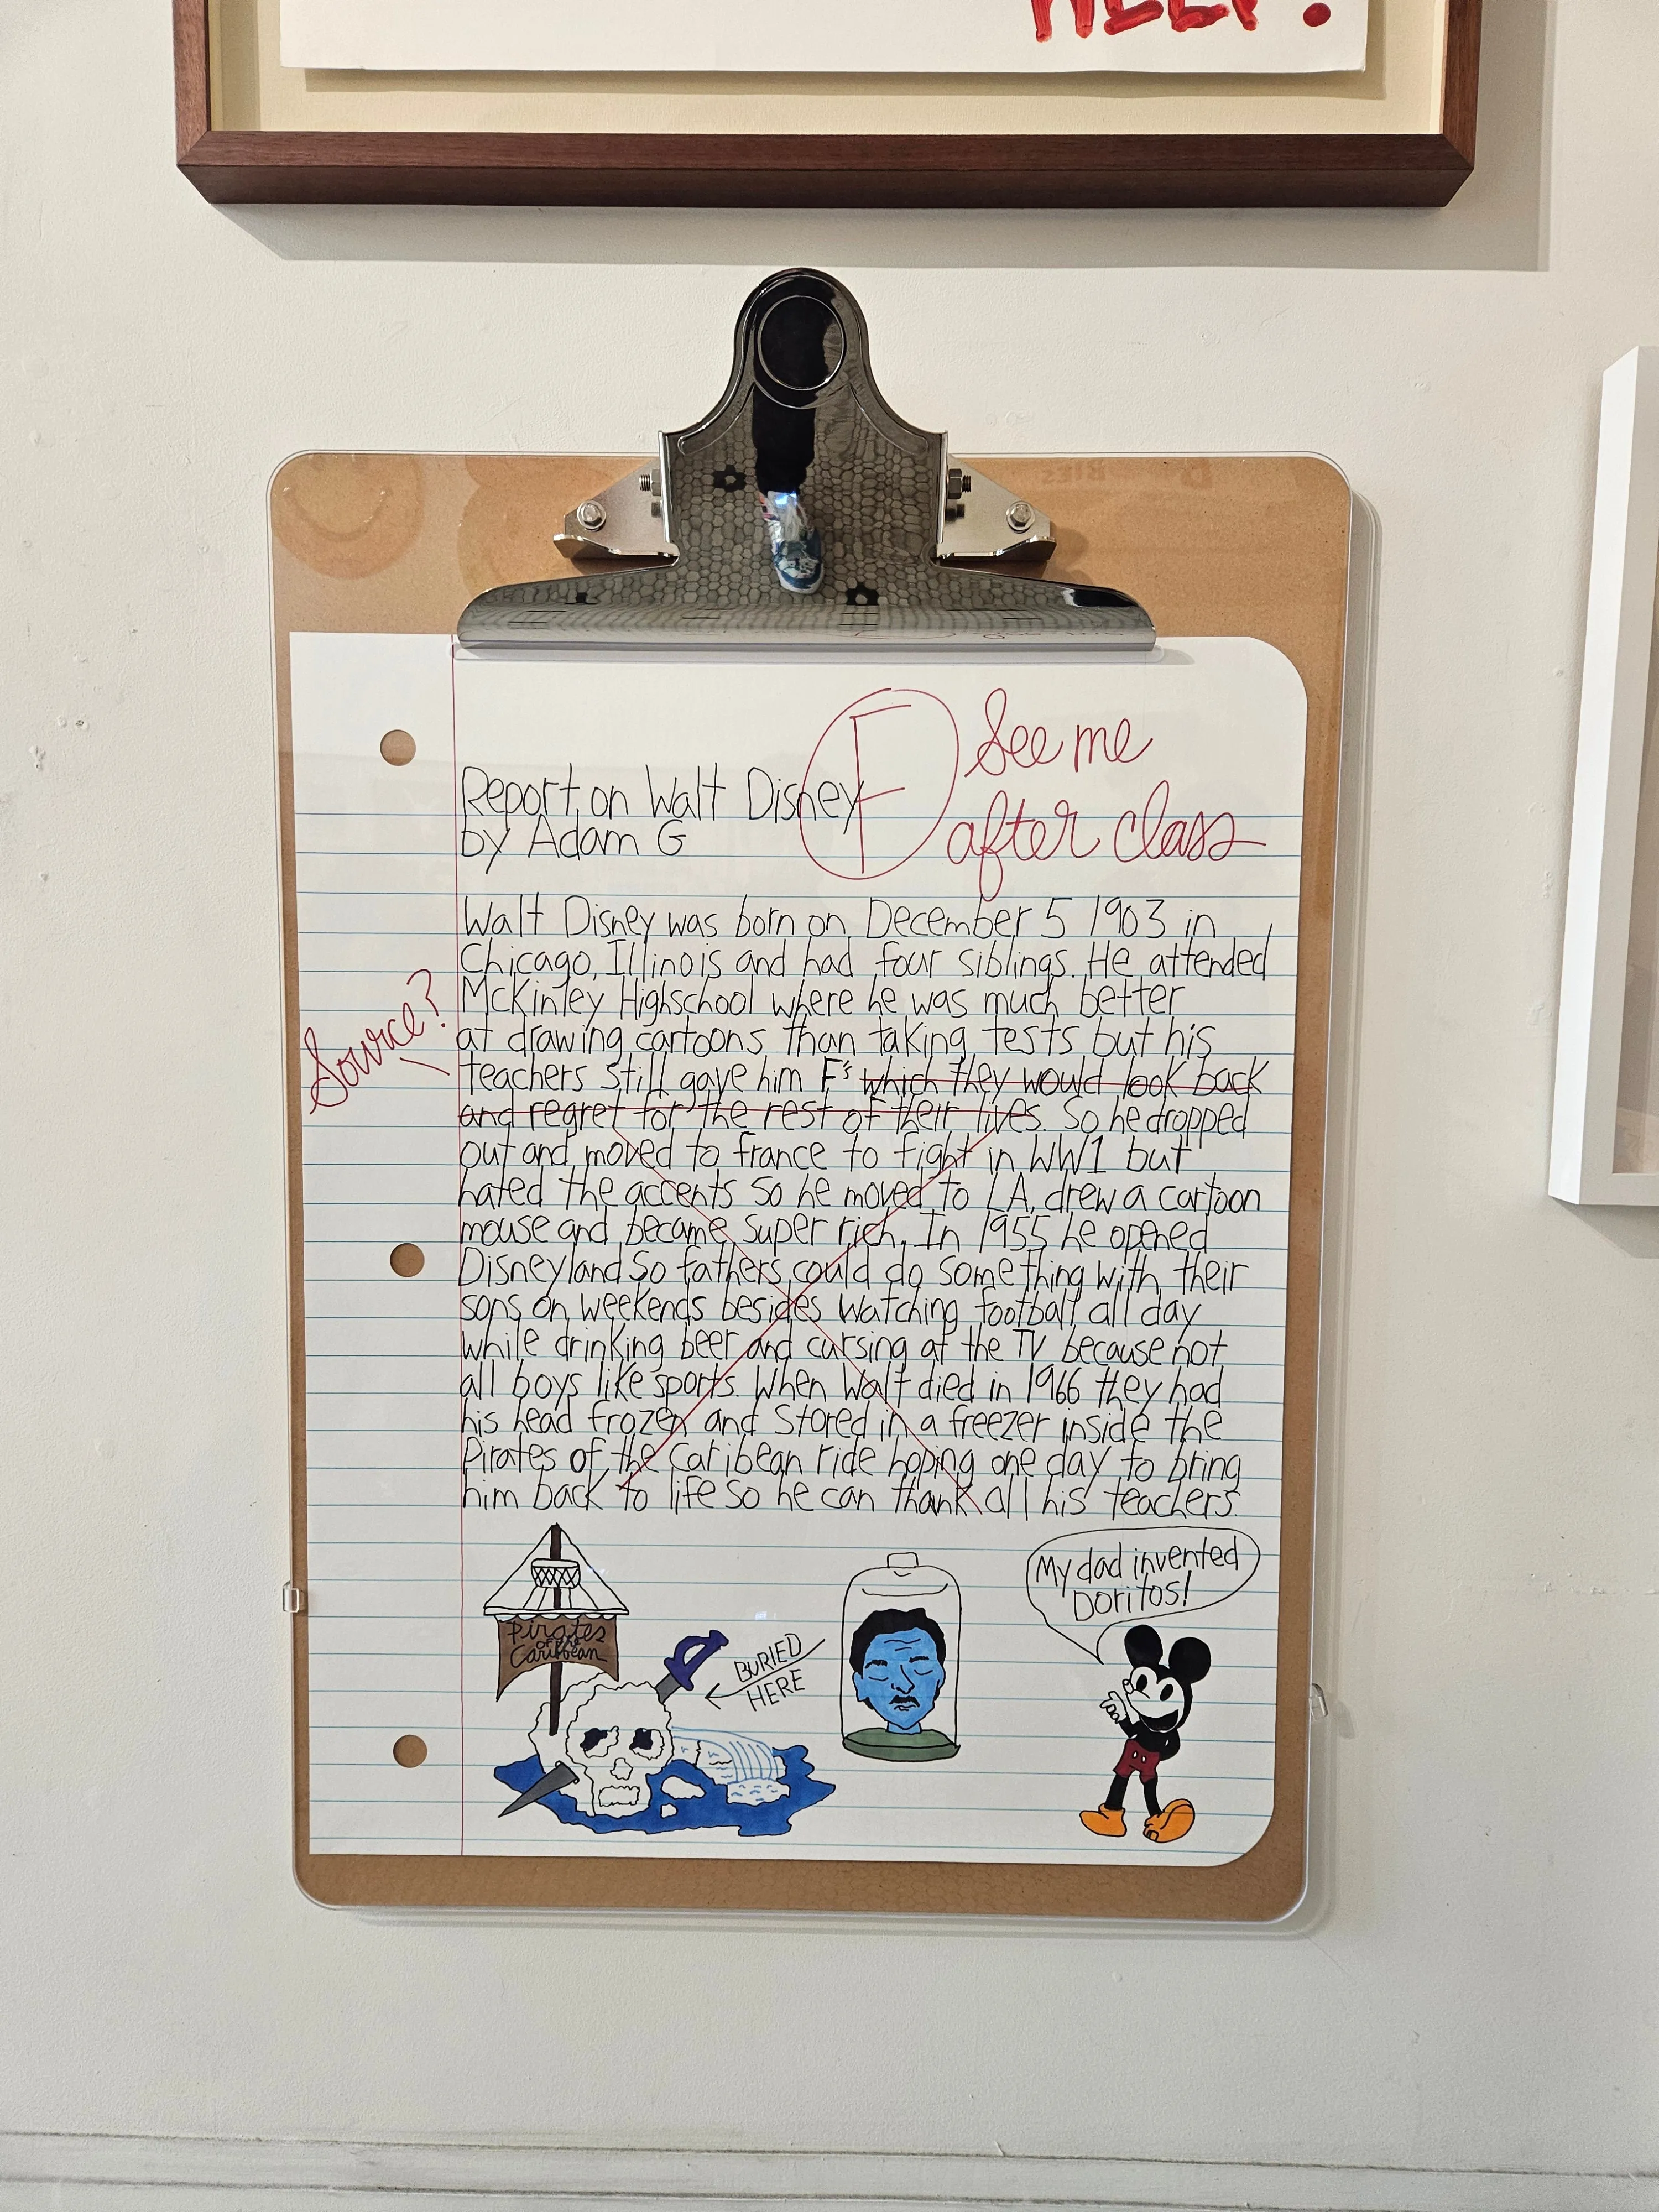 HELP!
F See me
after class
Report on Walt Disney
by Adam G
Walt Disney was born on December 5 1903 in
Chicago, Illinois and had four siblings. He attended
McKinley Highschool where he was much better
at drawing cartoons than taking tests but his
Source?
teachers still gave him F's which they would look back
and regret for the rest of their lives. So he dropped
out and moved to france to fight in WW1 but
hated the accents so he moved to LA, drew a cartoon
mouse and became super rich. In 1955 he opened
Disneyland so fathers could do something with their
sons on weekends besides watching football all day
while drinking beer and cursing at the TV because not
all boys like sports. When Walt died in 1966 they had
his head frozen and stored in a freezer inside the
Pirates of the Caribbean ride hoping one day to bring
him back to life so he can thank all his teachers.
My dad invented
Doritos!
Pirates
of the
Caribbean
BURIED
HERE